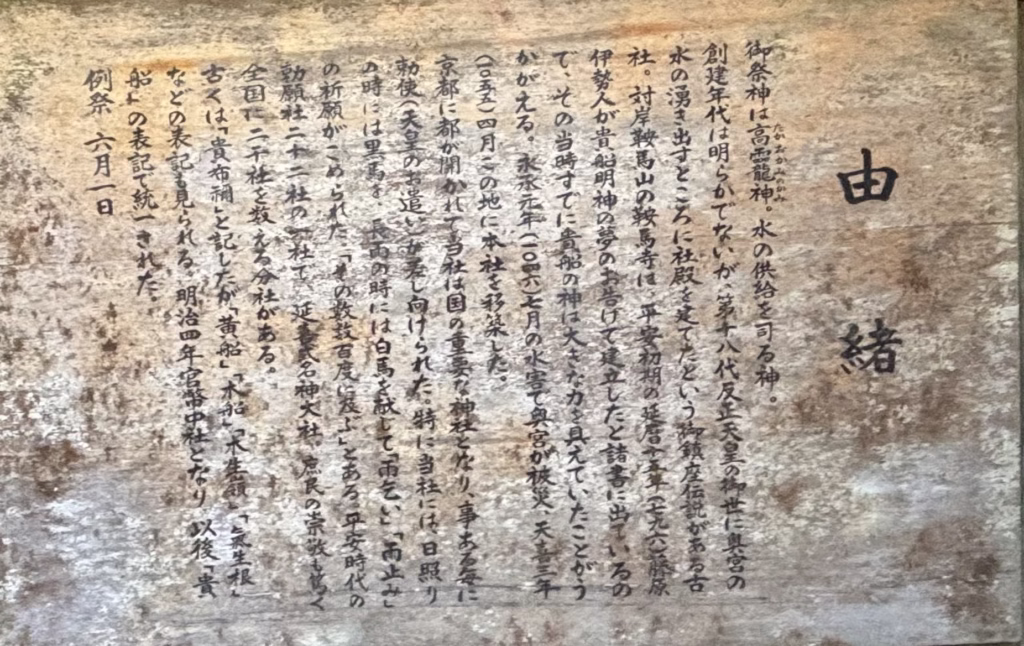 由緒
御祭神は高龗龍神。水の供給を司る神。
たかおかみのかみ
創建年代は明らかでないが、第十八代反正天皇の御世に奥宮の
水の湧き出すところに社殿を建てたという御鎮座伝説がある古
社。対岸鞍馬山の鞍馬寺は、平安初期の延暦十五年(七九六)藤原
伊勢人が貴船明神の夢のお告げで建立したと諸書に出ているの
で、その当時すでに貴船の神は大きな力を具えていたことがう
かがえる。永承元年(一〇四六)七月の水害で奥宮が被災、天喜三年
(一〇五五)四月この地に本社を移築した。
京都に都が開かれて当社は国の重要な神社となり、事ある毎に
勅使(天皇のお遣い)が差し向けられた。特に当社には、日照り
の時には黒馬を、長雨の時には白馬を献じて「雨乞い」「雨止み」
の祈願がこめられた。「その数数百度に及ぶ」とある。平安時代の
勅願社二十二社の一社で、延喜式名神大社、庶民の崇敬も篤く
全国に二千社を数える分社がある。
古くは「貴布禰」と記したが「黄船」「木船」「木生嶺」「氣生根」
などの表記も見られる。明治四年官幣中社となり、以後「貴
船」の表記で統一された。
例祭 六月一日